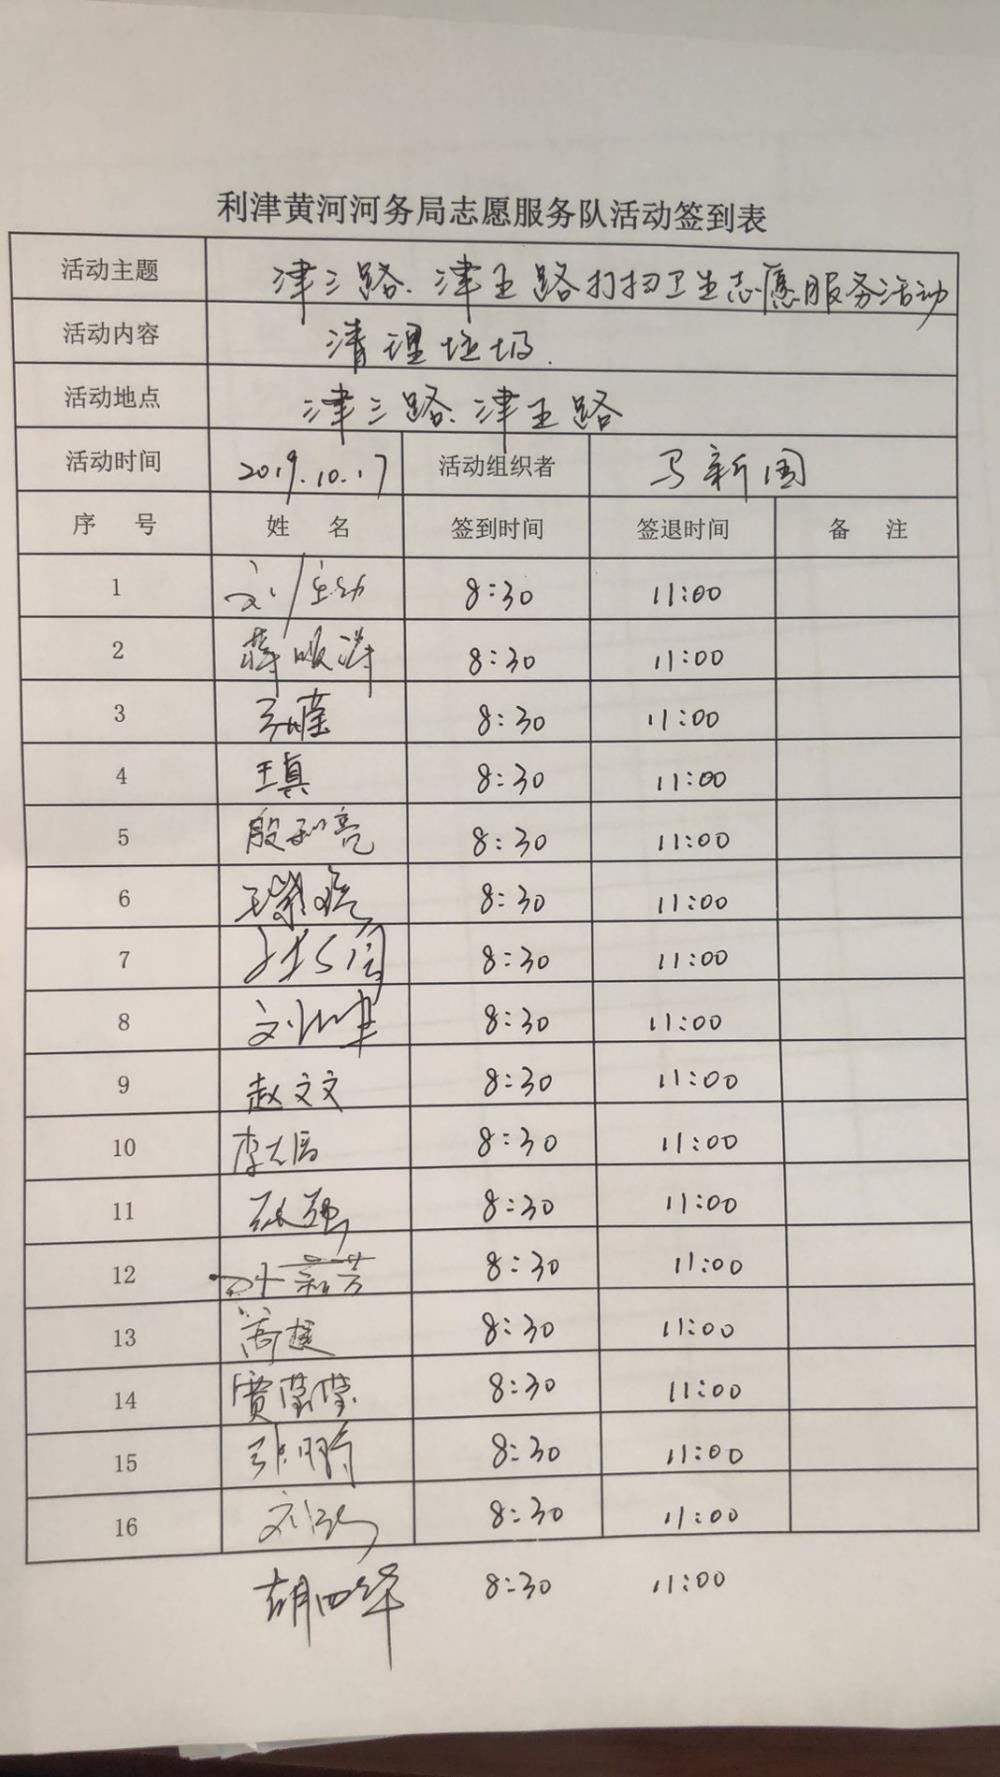 利津黄河河务局志愿服务队活动签到表
活动主题 津三路、津王路打扫卫生志愿服务活动
活动内容 清理垃圾.
活动地点 津三路、津王路
活动时间 2019.10.17 活动组织者 马新国
序 号 姓 名 签到时间 签退时间 备 注
1 8:30 11:00
2 8:30 11:00
3 8:30 11:00
4 王真 8:30 11:00
5 殷和亮 8:30 11:00
6 8:30 11:00
7 8:30 11:00
8 8:30 11:00
9 赵文文 8:30 11:00
10 8:30 11:00
11 8:30 11:00
12 8:30 11:00
13 8:30 11:00
14 贾莹莹 8:30 11:00
15 8:30 11:00
16 8:30 11:00
胡四华 8:30 11:00